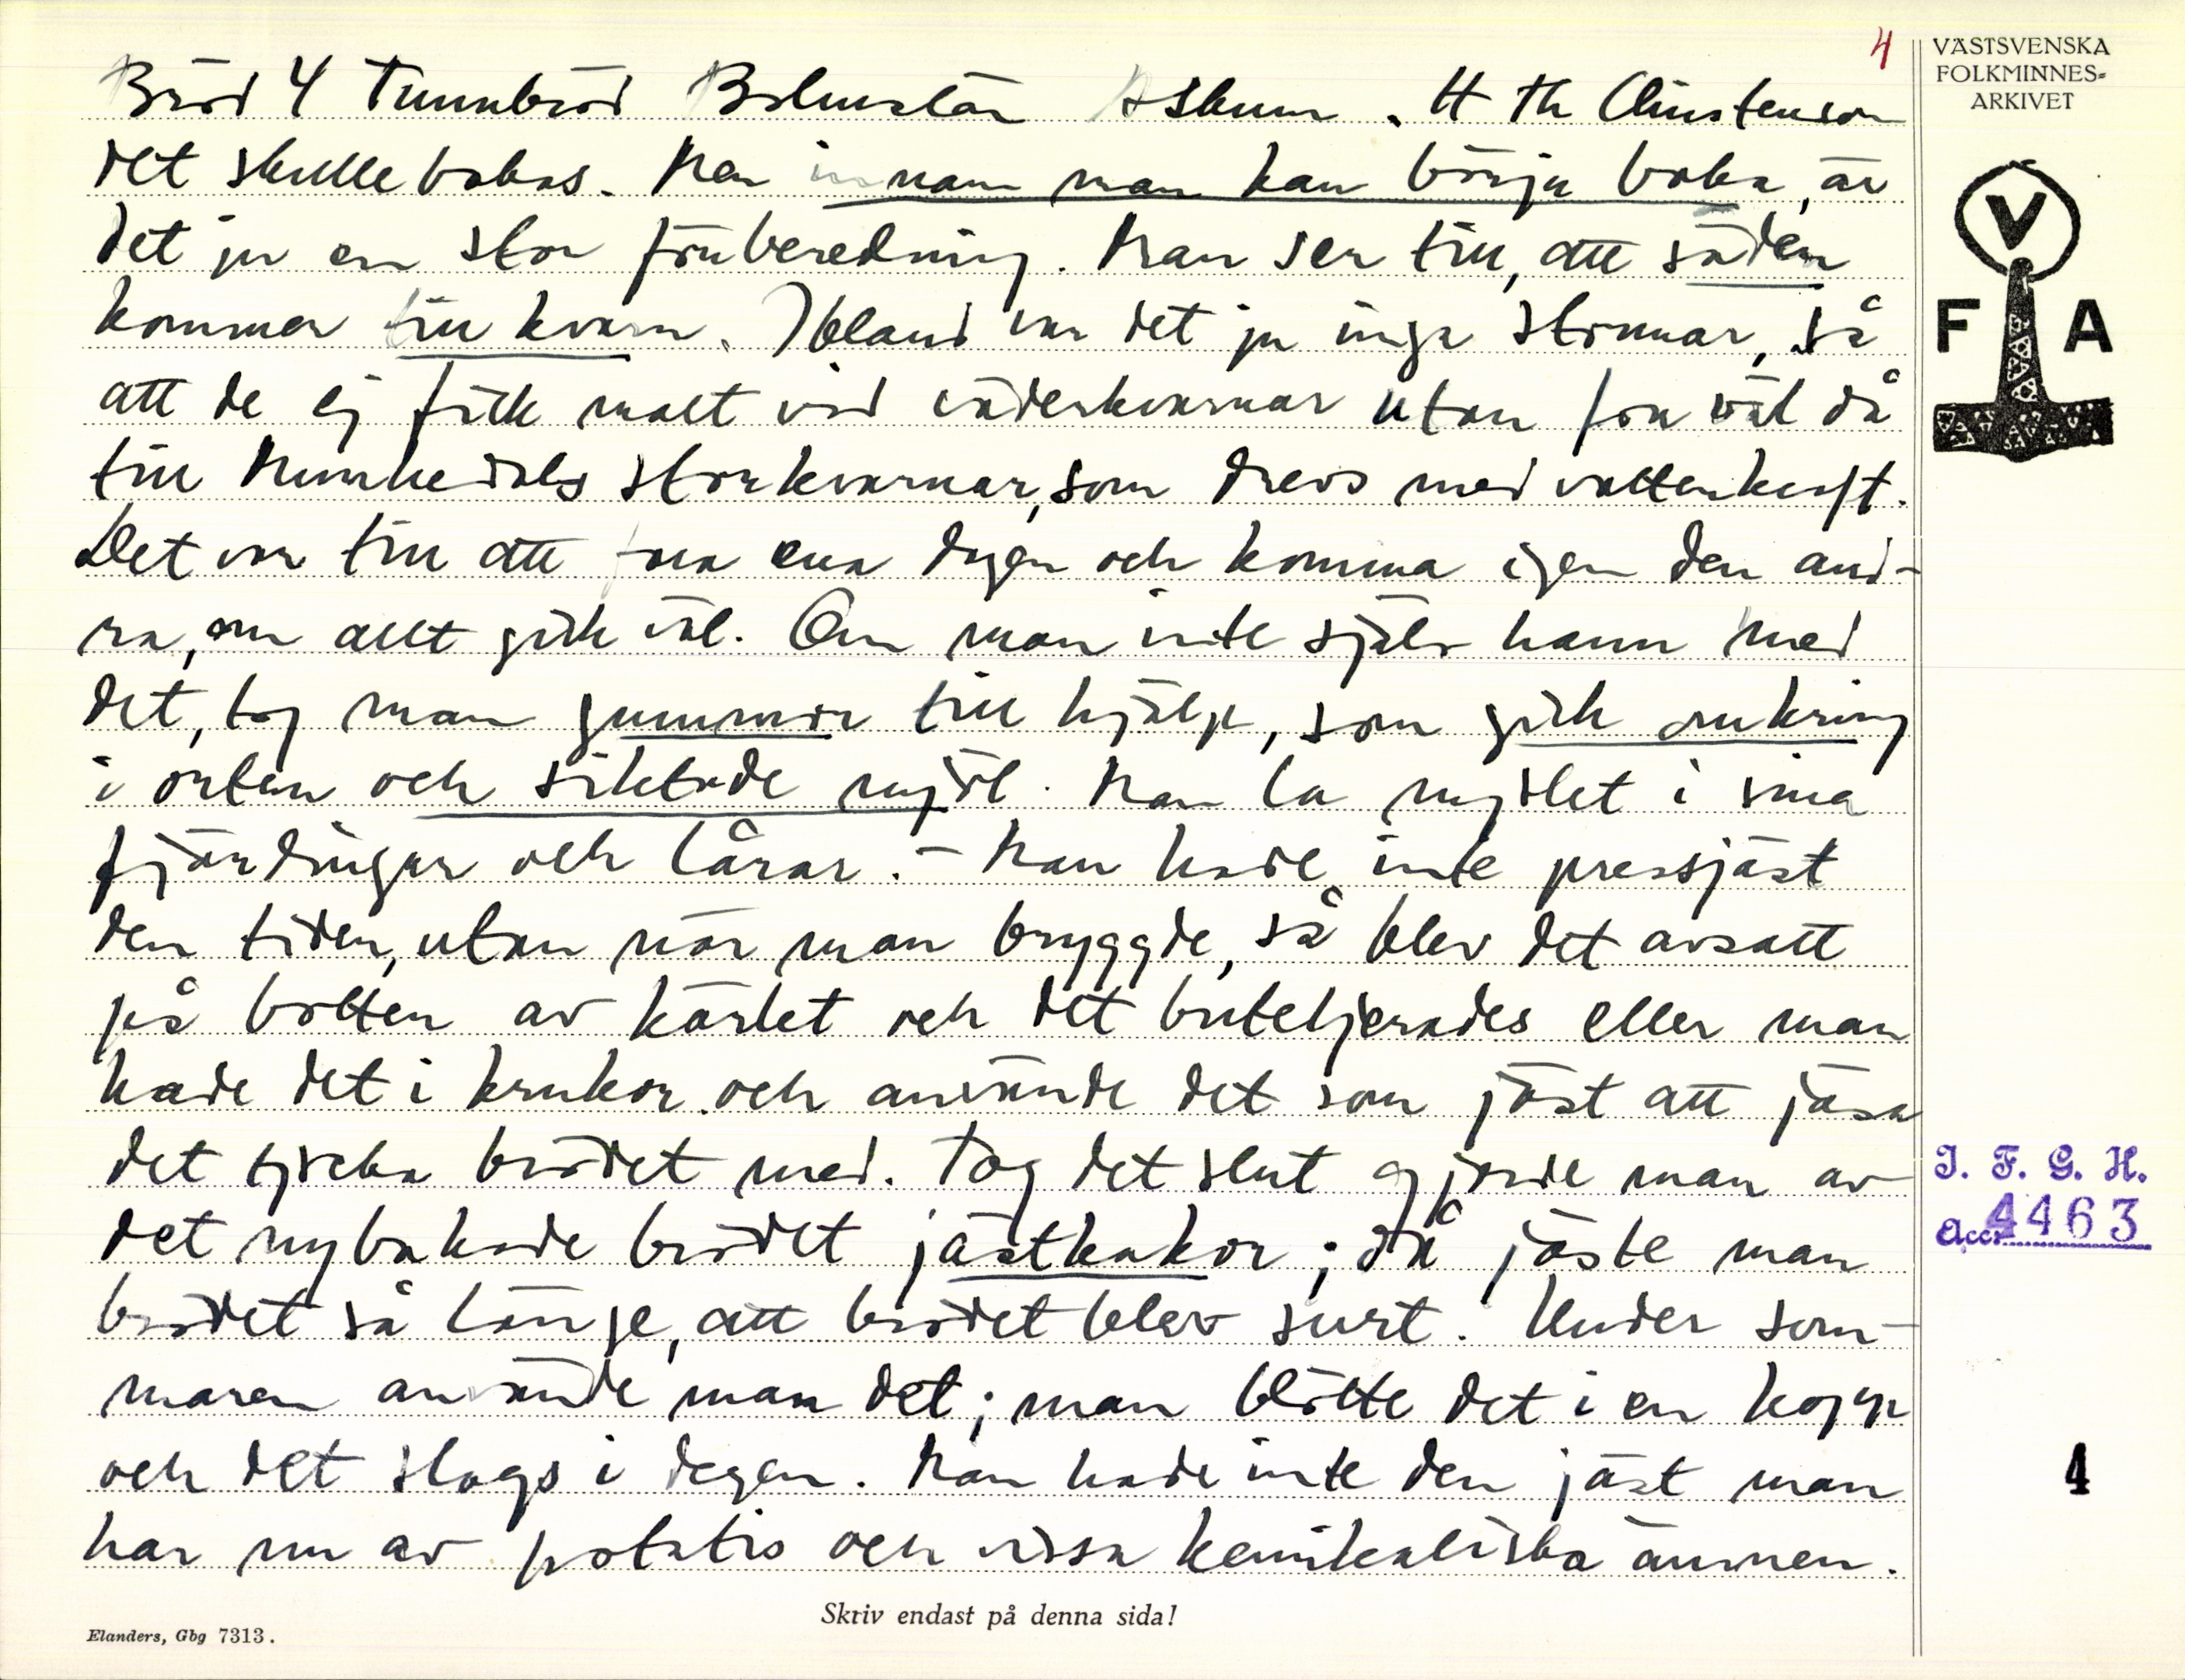 4
VÄSTSVENSKA
FOLKMINNES-
ARKIVET
V
F A
Bröd 4 Tunnbröd Bohuslän Askum. H Th Christenson
det skulle bakas. Men innan man kan börja baka, är
det ju en stor förberedning. Man ser till, att säden
kommer till kvarn. Ibland var det ju inga stormar, så
att de ej fick malt vid väderkvarnar utan för väl då
till Munkedals storkvarnar, som drevs med vattenkraft.
Det var till att fara ena dagen och komma igen den and-
ra, om allt gick väl. Om man inte själv hann med
det, tog man gummor till hjälp, som gick omkring
i orten och siktade mjöl. Man la mjölet i sina
fjärdingar och lårar. - Man hade inte pressjäst
den tiden, utan när man bryggde, så blev det avsatt
på botten av kärlet och det buteljerades eller man
hade det i krukor och använde det som jäst att jäsa
det tjocka brödet med. Tog det slut gjorde man av
det nybakade brödet jästkakor; då jäste man
brödet så länge, att brödet blev surt. Under som-
maren använde man det; man blötte det i en kopp
och det slogs i degen. Man hade inte den jäst man
har nu av potatis och vissa kemikaliska ämnen.
I. F. G. H.
Acc. 4463
4
Skriv endast på denna sida!
Elanders, Gbg 7313.